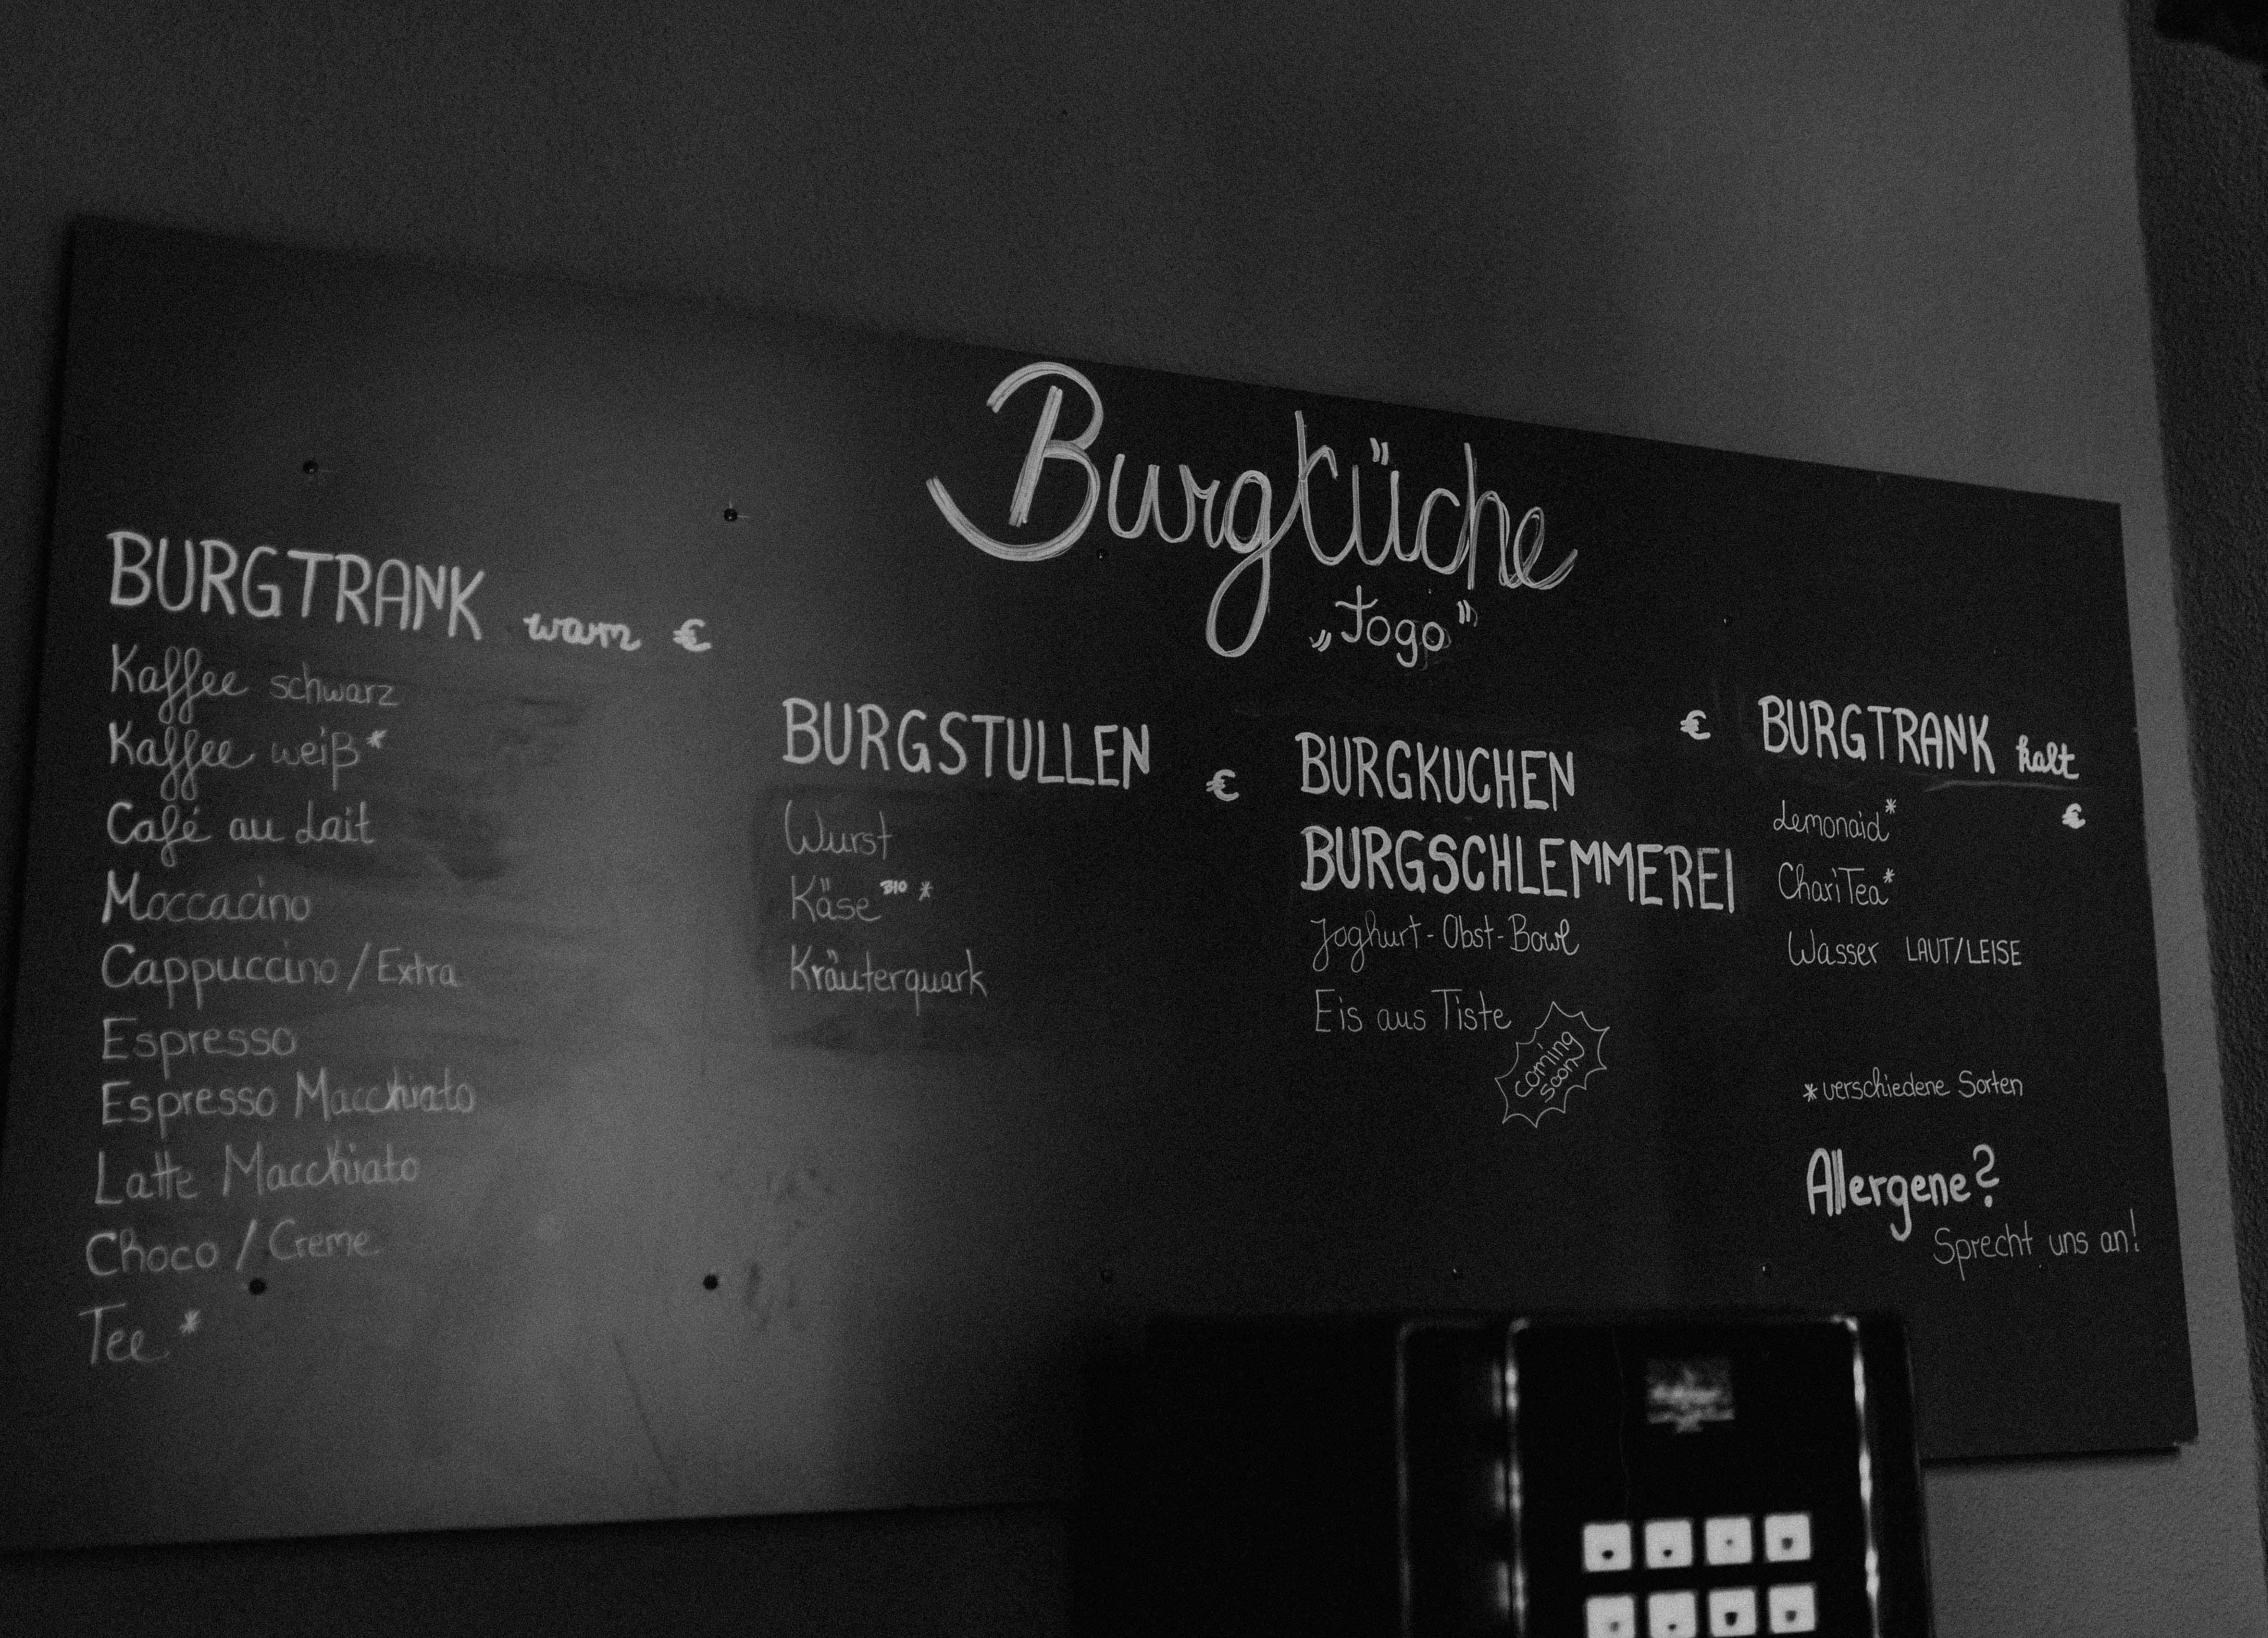 Burgküche
„Togo"
BURGTRANK warm €
Kaffee schwarz
Kaffee weiß*
Café au Lait
Moccacino
Cappuccino / Extra
Espresso
Espresso Macchiato
Latte Macchiato
Choco / Creme
Tee *
BURGSTULLEN
€
Wurst
Käse BIO *
Kräuterquark
€
BURGKUCHEN
BURGSCHLEMMEREI
Joghurt-Obst-Bowl
Eis aus Tiste
coming
soon
BURGTRANK kalt
€
Lemonaid*
ChariTea*
Wasser LAUT/LEISE
*verschiedene Sorten
Allergene?
Sprecht uns an!